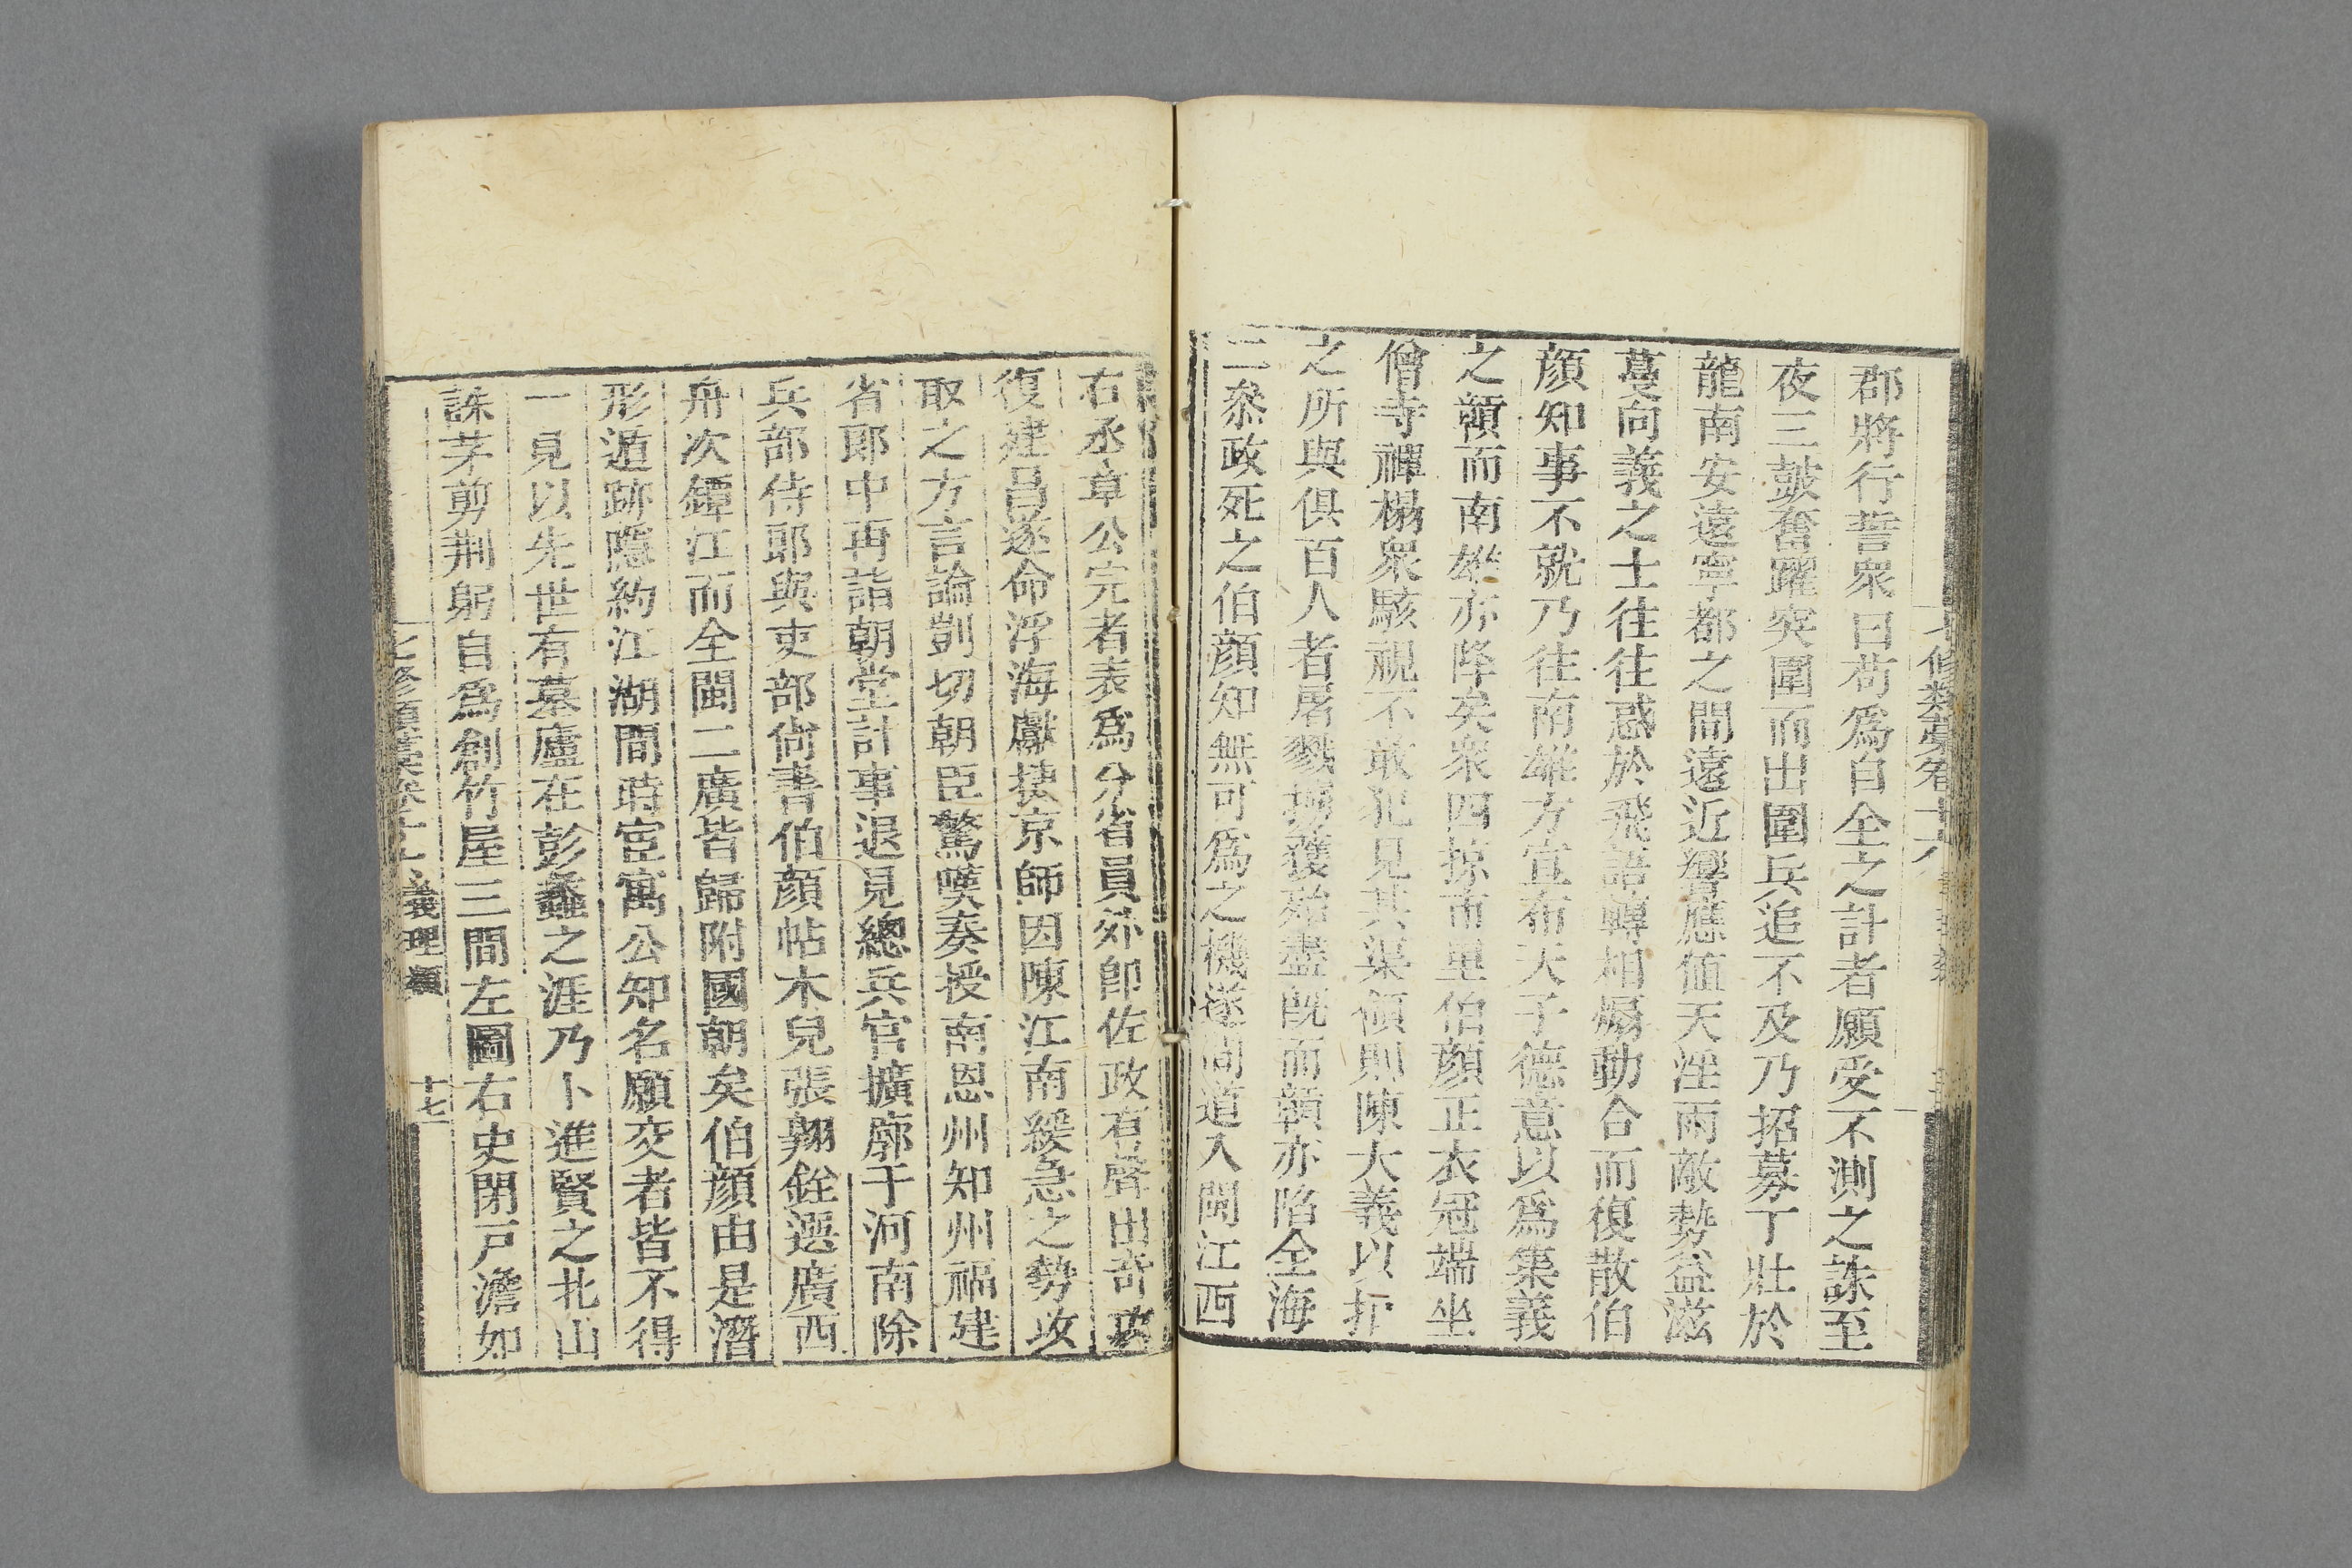 七修類藁卷十六
郡將行誓衆曰苟爲自全之計者願受不測之誅至
夜三鼓奮躍突圍而出圍兵追不及乃招募丁壯於
龍南安遠寧都之間遠近響應値天淫雨敵勢益滋
蔓向義之士往往惑於飛語轉相煽動合而復散伯
顔知事不就乃往南雄方宣布天子德意以爲集義
之顔而南雄亦降矣衆四掠而里伯顔正衣冠端坐
僧寺禪榻衆駭視不敢犯見其渠傾則陳大義以折
之所與俱百人者屠戮擄獲殆盡旣而贑亦陷全海
二叅政死之伯顔知無可爲之機遂間道入閩江西
右丞章公完者表爲分省員外郎佐政有聲出奇攻
復建昌遂命浮海獻捷京師因陳江南緩急之勢攻
取之方言論剴切朝臣驚嘆奏授南恩州知州福建
省郎中再詣朝堂計事退見總兵官擴廓于河南除
兵部侍郎與吏部尙書伯顔帖木兒張翺銓選廣西
舟次鐔江而全閩二廣皆歸附國朝矣伯顔由是潛
形遁跡隱約江湖間時宦寓公知名願交者皆不得
一見以先世有墓廬在彭蠡之涯乃卜進賢之北山
誅茅剪荆躬自爲創竹屋三間左圖右史閉戸澹如
七修類藁卷十六 義理類 十七